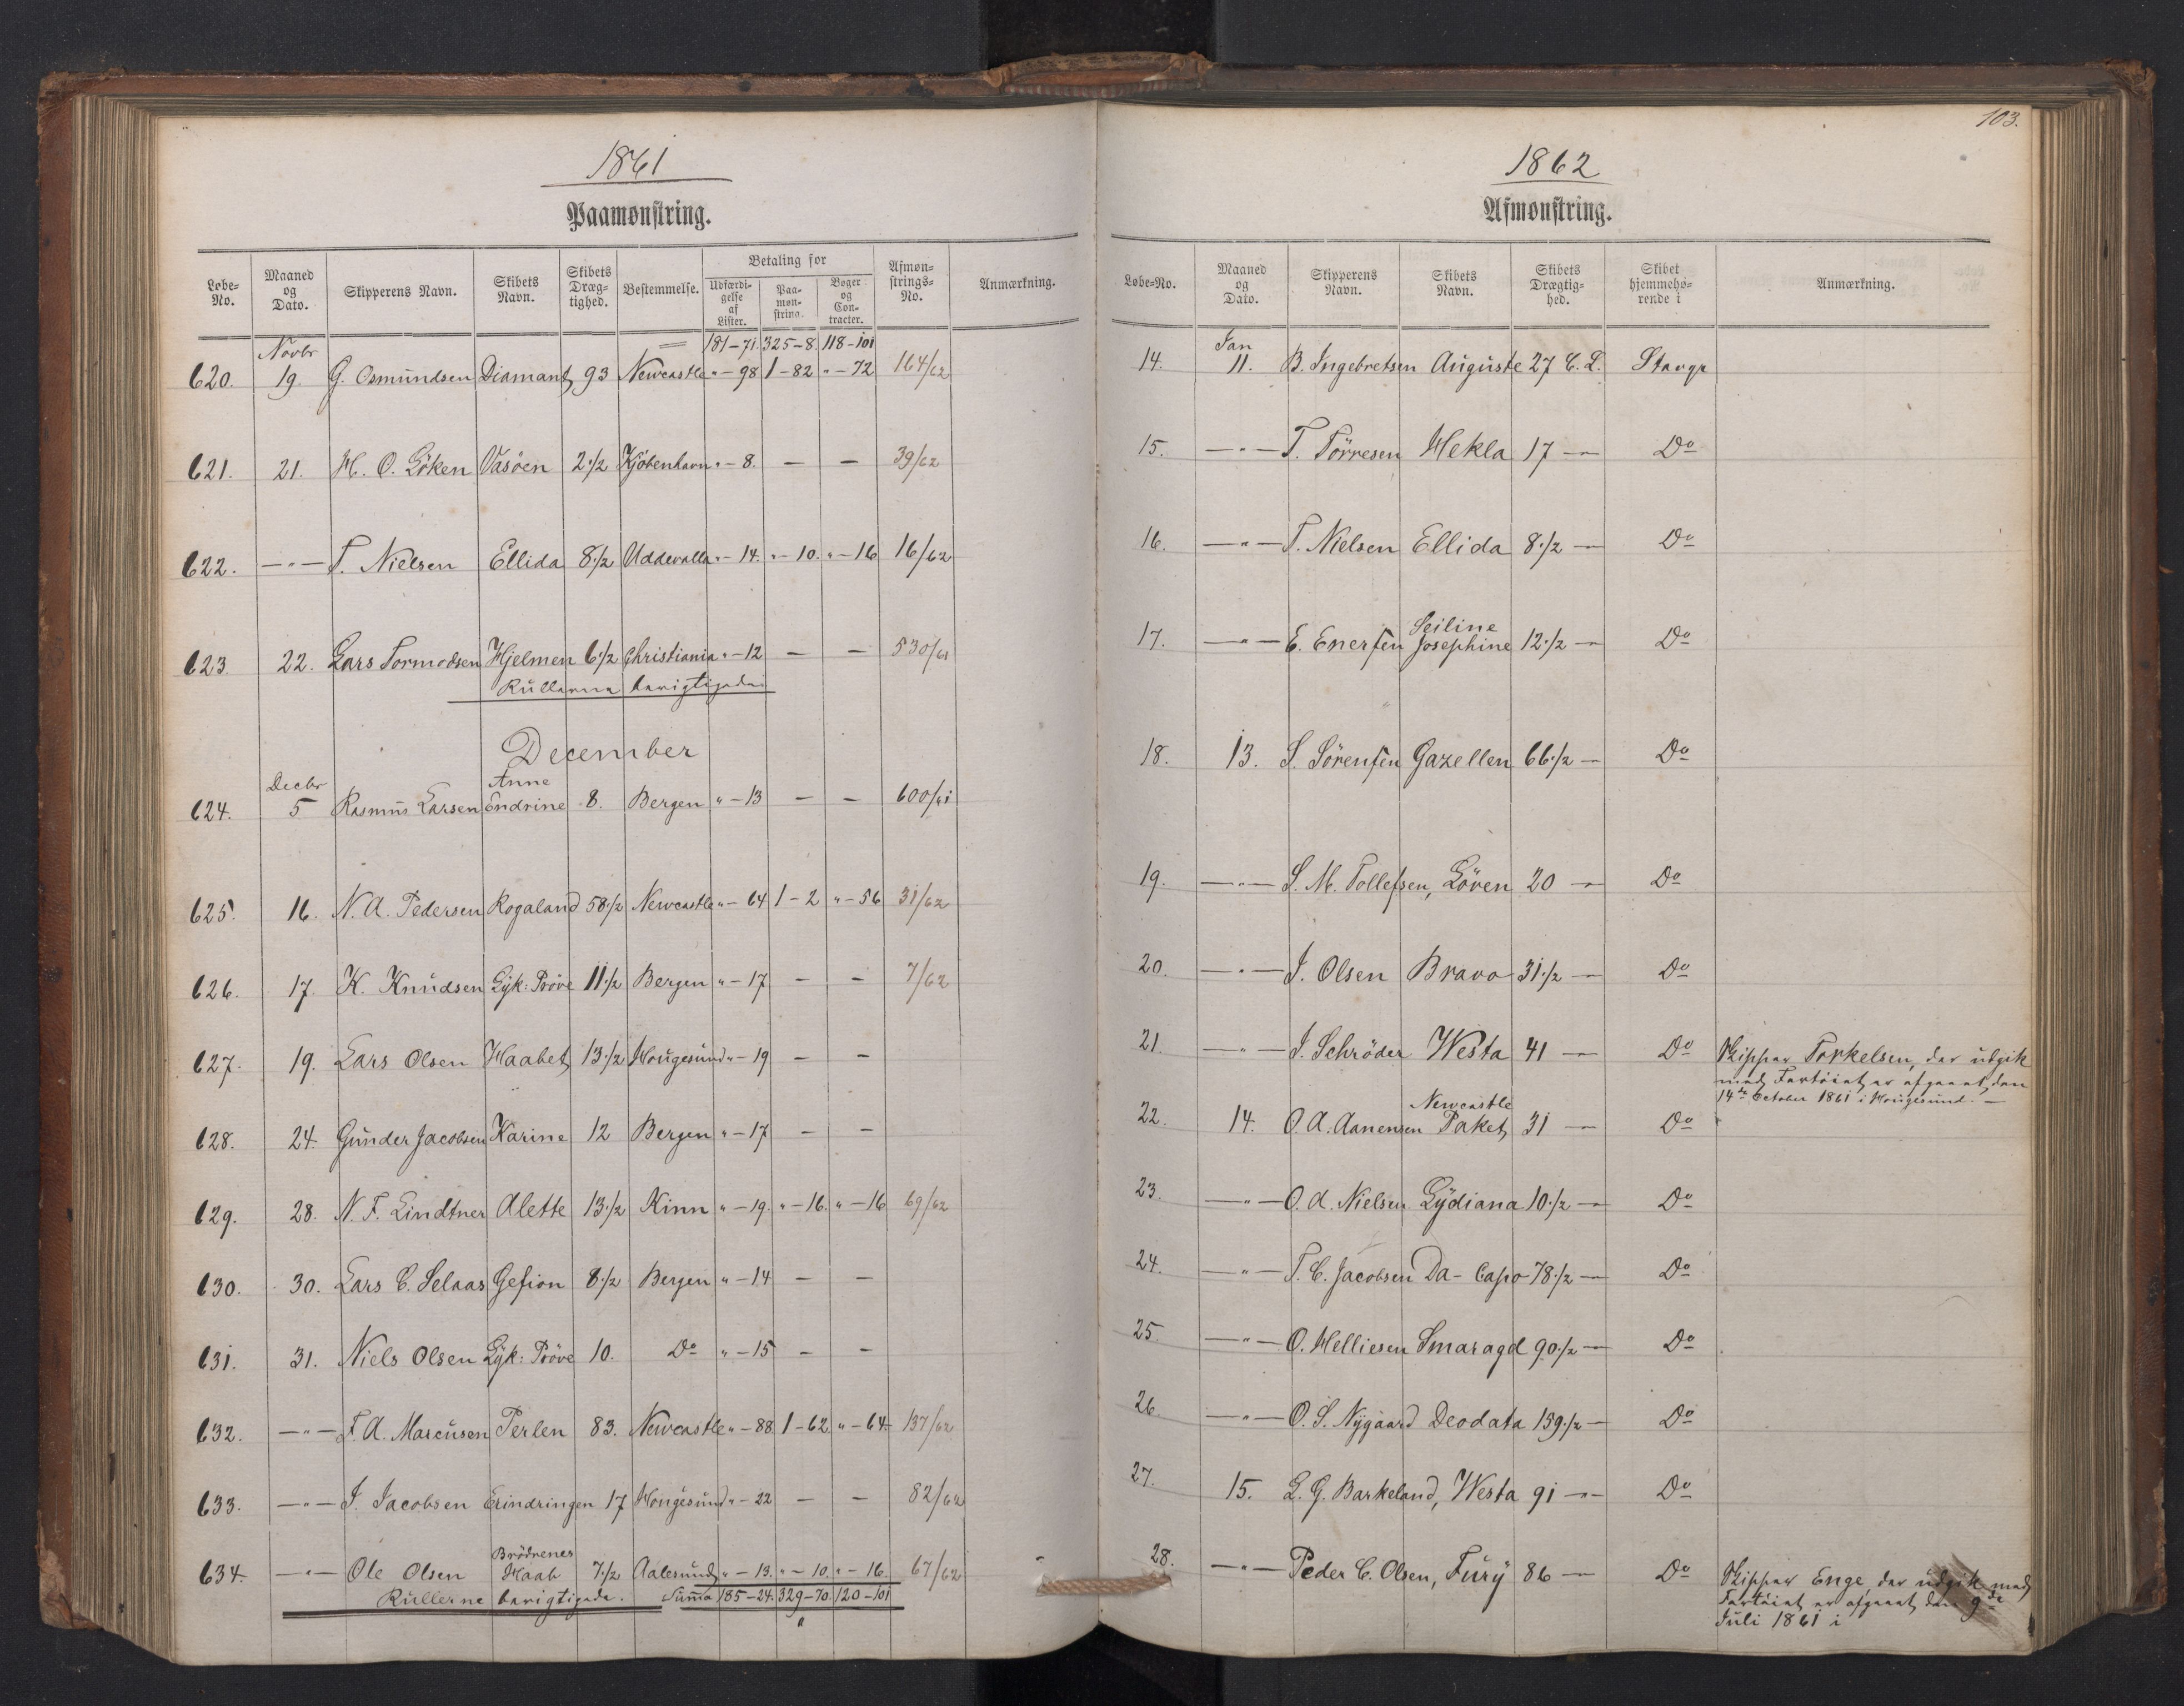 1861
Paamønstring.
Løbe-No. Maaned og Dato. Skipperens Navn. Skibets Navn. Skibets Drægtighed. Bestemmelse. Betaling for Udfærdigelse af Lister. Paamønstring. Bøger og Contracter. Afmønstrings-No. Anmærkning.
181-71. 325-8. 118-101
620. Novbr 19. G. Osmundsen Diamant 93 Newcastle " - 98 1-82 " - 72 164/62
621. 21. H. O. Löken Vasöen 2 1/2 Kjöbenhavn " - 8. — — 39/62
622. —"— T. Nielsen Ellida 8 1/2 Uddevalla " - 14. " - 10. " - 16 16/62
623 22. Lars Tormodsen Hjelmen 6 1/2 Christiania " - 12 — — 530/61
Rullerne berigtigede
December
624. Decbr 5 Rasmus Larsen Anne Endrine 8. Bergen " - 13 — — 600/61
625. 16. N. A. Pedersen Rogaland 58 1/2 Newcastle " - 64 1-2 " - 56 31/62
626. 17. K. Knudsen Lyk: Pröve 11 1/2 Bergen " - 17 — — 7/62
627. 19. Lars Olsen Haabet 13 1/2 Hougesund " - 19 — —
628. 24. Gunder Jacobsen Karine 12 Bergen " - 17 — —
629. 28. N. F. Lindtner Alette 13 1/2 Kinn " - 19. " - 16. " - 16 69/62
630. 30. Lars C. Selaas Gefion 8 1/2 Bergen " - 14 — —
631. 31. Niels Olsen Lyk: Pröve 10. Do " - 15 — —
632. —"— F. A. Marcusen Perlen 83. Newcastle " - 88 1-62 " - 64 137/62
633. —"— J. Jacobsen Erindringen 17 Hougesund " - 22 — — 82/62
634. —"— Ole Olsen Brödrenes Haab 7 1/2 Aalesund " - 13. " - 10. " - 16. 67/62
Rullerne berigtigede. Summa 185-24. 329-70. 120-101
103.
1862
Afmønstring.
Løbe-No. Maaned og Dato. Skipperens Navn. Skibets Navn. Skibets Drægtighed. Skibet hjemmehørende i Anmærkning.
14. Jan 11. B. Ingebretsen Auguste 27 C. L. Stavgr
15. —"— T. Törresen Hekla 17 — Do
16. —"— T. Nielsen Ellida 8 1/2 — Do
17. —"— E. Enersen Seiline Josephine 12 1/2 — Do
18. 13. S. Sörensen Gazellen 66 1/2 — Do
19. —"— S. M. Tollefsen, Löven 20 — Do
20. —"— J. Olsen Bravo 31 1/2 — Do
21. —"— J. Schröder Westa 41 — Do Skipper Torkelsen, der udgik
med Fartöiet er afgaaet den
14de October 1861 i Hougesund. —
22. 14. O. A. Aanensen Newcastle Paket 31 — Do
23. —"— O. A. Nielsen Lydiana 10 1/2 — Do
24. —"— T. C. Jacobsen Da-Capo 78 1/2 — Do
25 —"— O. Helliesen Smaragd 90 1/2 — Do
26. —"— O. S. Nygaard Deodata 159 1/2 — Do
27. 15. L. G. Barkeland, Westa 91 — Do
28. —"— Peder C. Olsen, Fury 86 — Do Skipper Enge, der udgik med
Fartöiet er afgaaet den 9de
Juli 1861 i